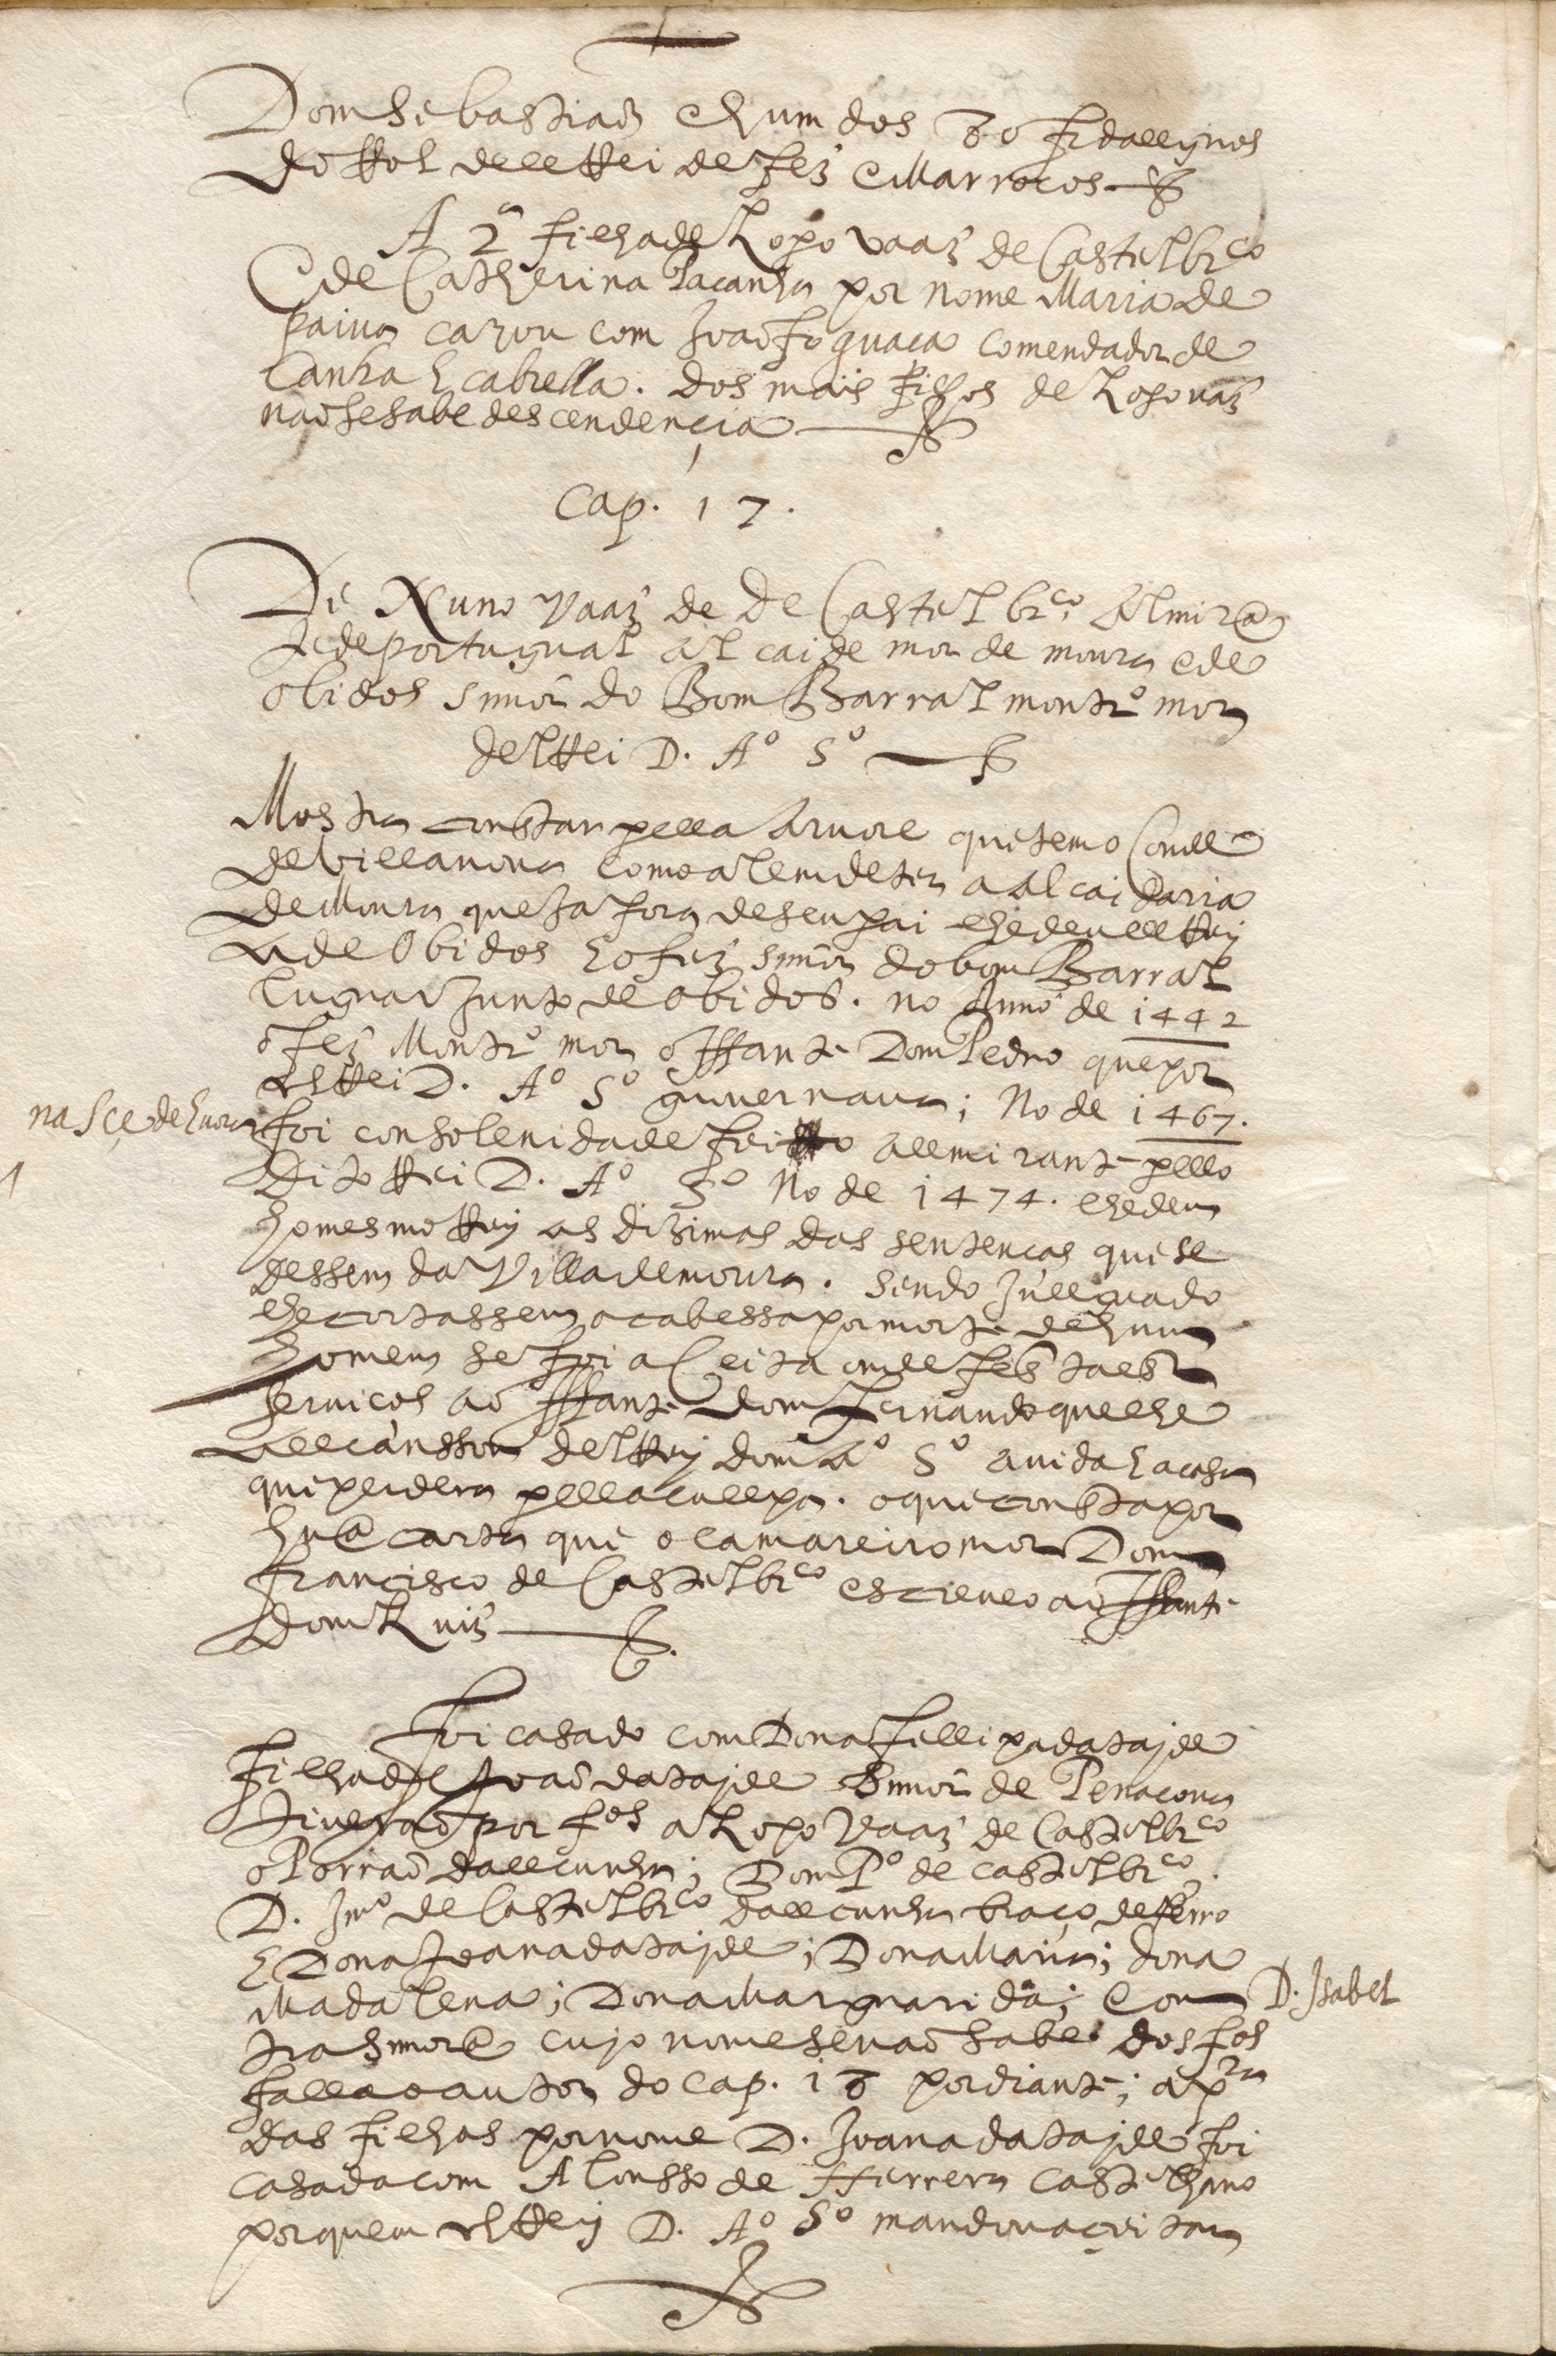 Dom Sebastiaõ e hum dos 80 fidallguos
do Rol dellRei de Fez e Marrocos
A 2ª filha de Lopo vaaz de Castelbr.co
E de Catherina Pacanha por nome Maria de
Paiva cazou com Joaõ foguaca Comendador de
Canha E cabrella. dos mais filhos de Lopo vaz
naõ se sabe descendençia
Cap. 17.
De Nuno Vaaz de de Castelbr.co Almirã
te de portugual alcaide mor de moura e de
obidos snnõr do Bom Barral montr.o mor
delRei D. Aº 5º
Mostra constar pella Aruore que tem o Conde
de Villanova como alem de ter a Alcaidaria
de Moura que ja fora de seu pai lhe deu ellRey
a de Obidos E o fez snnõr do bom Barral
lugnar junto de obidos. no Anno de 1442
o fez Montr.o mor o Iffante Dom Pedro que por
elRei D. Aº 5º guovernava; No de 1467.
foi con solenidade feito allmirante pello
Dito Rei D. Aº 5º No de 1474. lhe deu
ho mesmo Rey as dizimas das sentencas que se
dessem da Villa de moura. sendo Jullguado
lhe cortassem a cabessa por morte de hum
homem se foi a Ceita omde fes taes
servicos aõ Iffante Dom Fernando que lhe
allcansou delRey dom Aº 5º a vida E a casa
que perdera pella cullpa. o que consta por
huã carta que o camareiro mor Dom
Francisco de Castelbr.co escreveo aõ Iffante
Dom Luis
Foi casado com Dona Fellipa dataide
filha de Joaõ dataide Snnõr de Penacova
tiveraõ por f.os a Lopo Vaaz de Castelbr.co
o Torraõ dallcunha; Dom P.o de castelbr.co,
D. Jm.o de Castelbr.co dallcunha braço de ferro
E Dona Joana dataide; Dona Maria; dona
Madalena; Dona Marguarida; E ou
D. Isabel
tra snnorã cujo nome se naõ sabe. dos f.os
falla o autor do Cap. 18 por diante; a pr.a
das filhas por nome D. Joana dataide foi
casada com Alonsso de Herrera castelhano
por quem elRey D. Aº 5º mandou aceitar